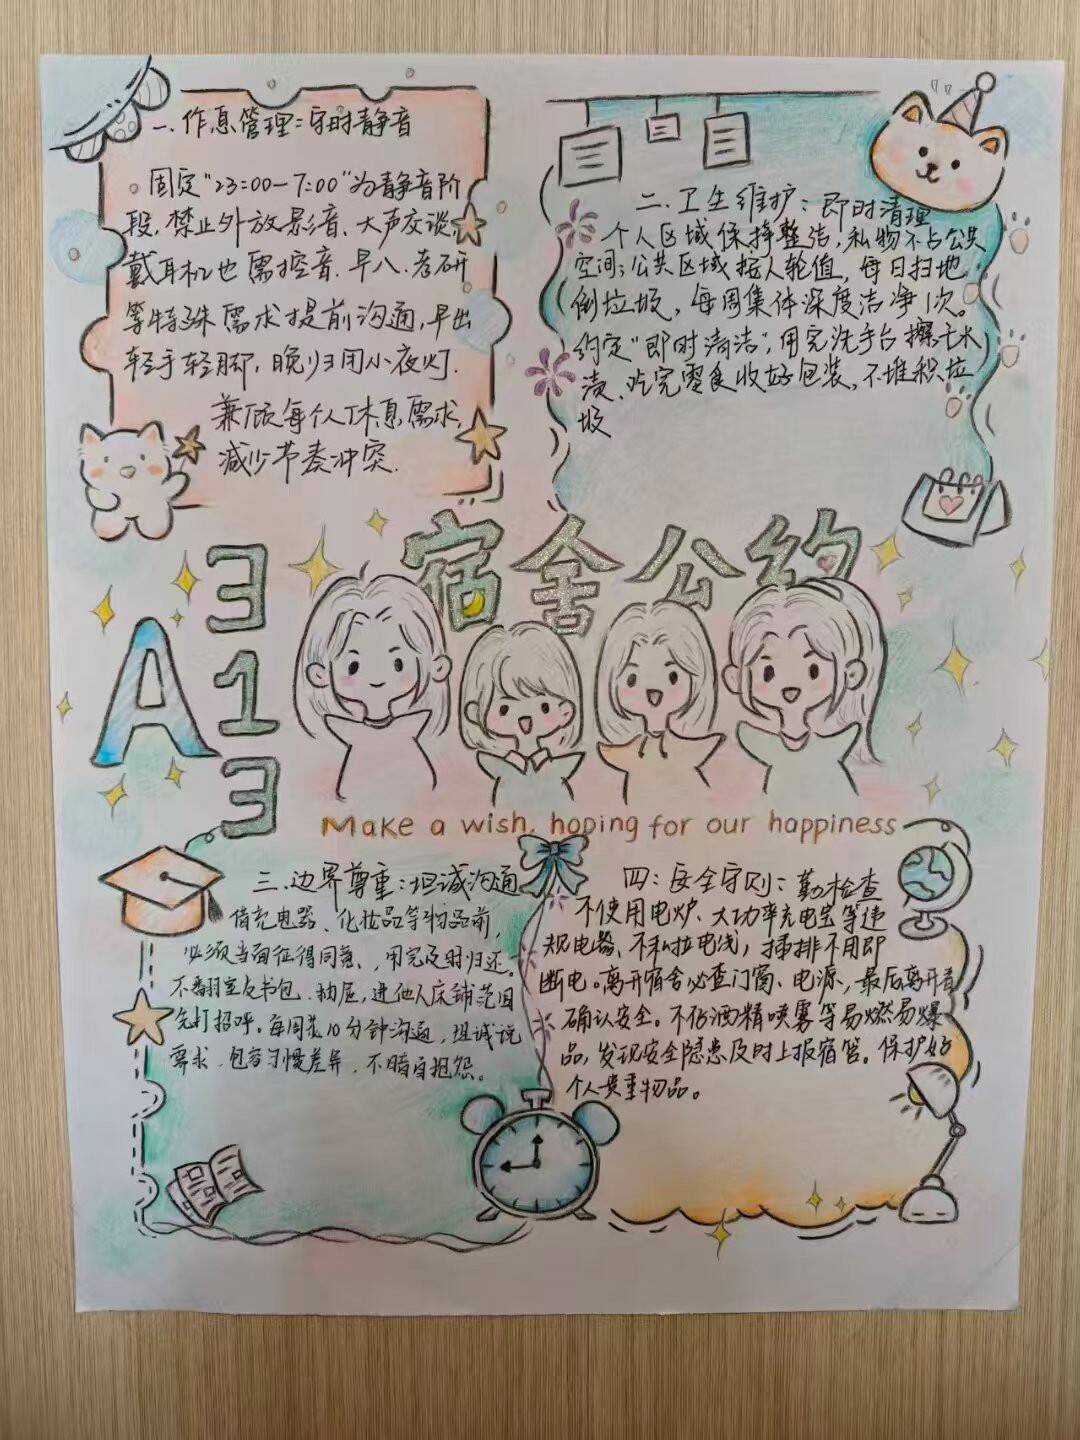 一、作息管理：守时静音
。固定“23:00—7:00”为静音阶
段，禁止外放影音、大声交谈，
戴耳机也需控音.早八、考研
等特殊需求提前沟通,早出
轻手轻脚，晚归闭小夜灯.
兼顾每个人休息需求,
减少节奏冲突.
二、卫生维护：即时清理
个人区域保持整洁，私物不占公共
空间；公共区域按人轮值，每日扫地
倒垃圾，每周集体深度洁净1次。
约定“即时清洁”，用完洗手台擦干水
渍、吃完零食收好包装、不堆积垃
圾
宿舍公约
A
3
1
3
Make a wish, hoping for our happiness
三、边界尊重：坦诚沟通
借充电器、化妆品等物品前，
必须当面征得同意、用完及时归还。
不翻室友书包、抽屉，进他人床铺范围
先打招呼。每周花10分钟沟通，坦诚说
需求、包容习惯差异，不暗自抱怨。
四：安全守则：勤检查
不使用电炉、大功率充电宝等违
规电器、不私拉电线，插排不用即
断电。离开宿舍必查门窗、电源，最后离开者
确认安全。不存酒精喷雾等易燃易爆
品，发现安全隐患及时上报宿管。保护好
个人贵重物品。